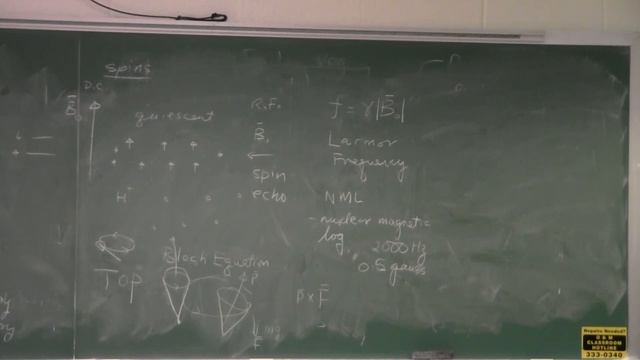 spins
D.C.
B̄₀
quiescent
R.F.
B̄₁
spin
echo
H⁺
f = γ|B̄₀|
Larmor
Frequency
NML
- nuclear magnetic
log
2000 Hz
0.5 gauss
Bloch Equation
Top
Repairs Needed?
CLASSROOM
HOTLINE
333-0346